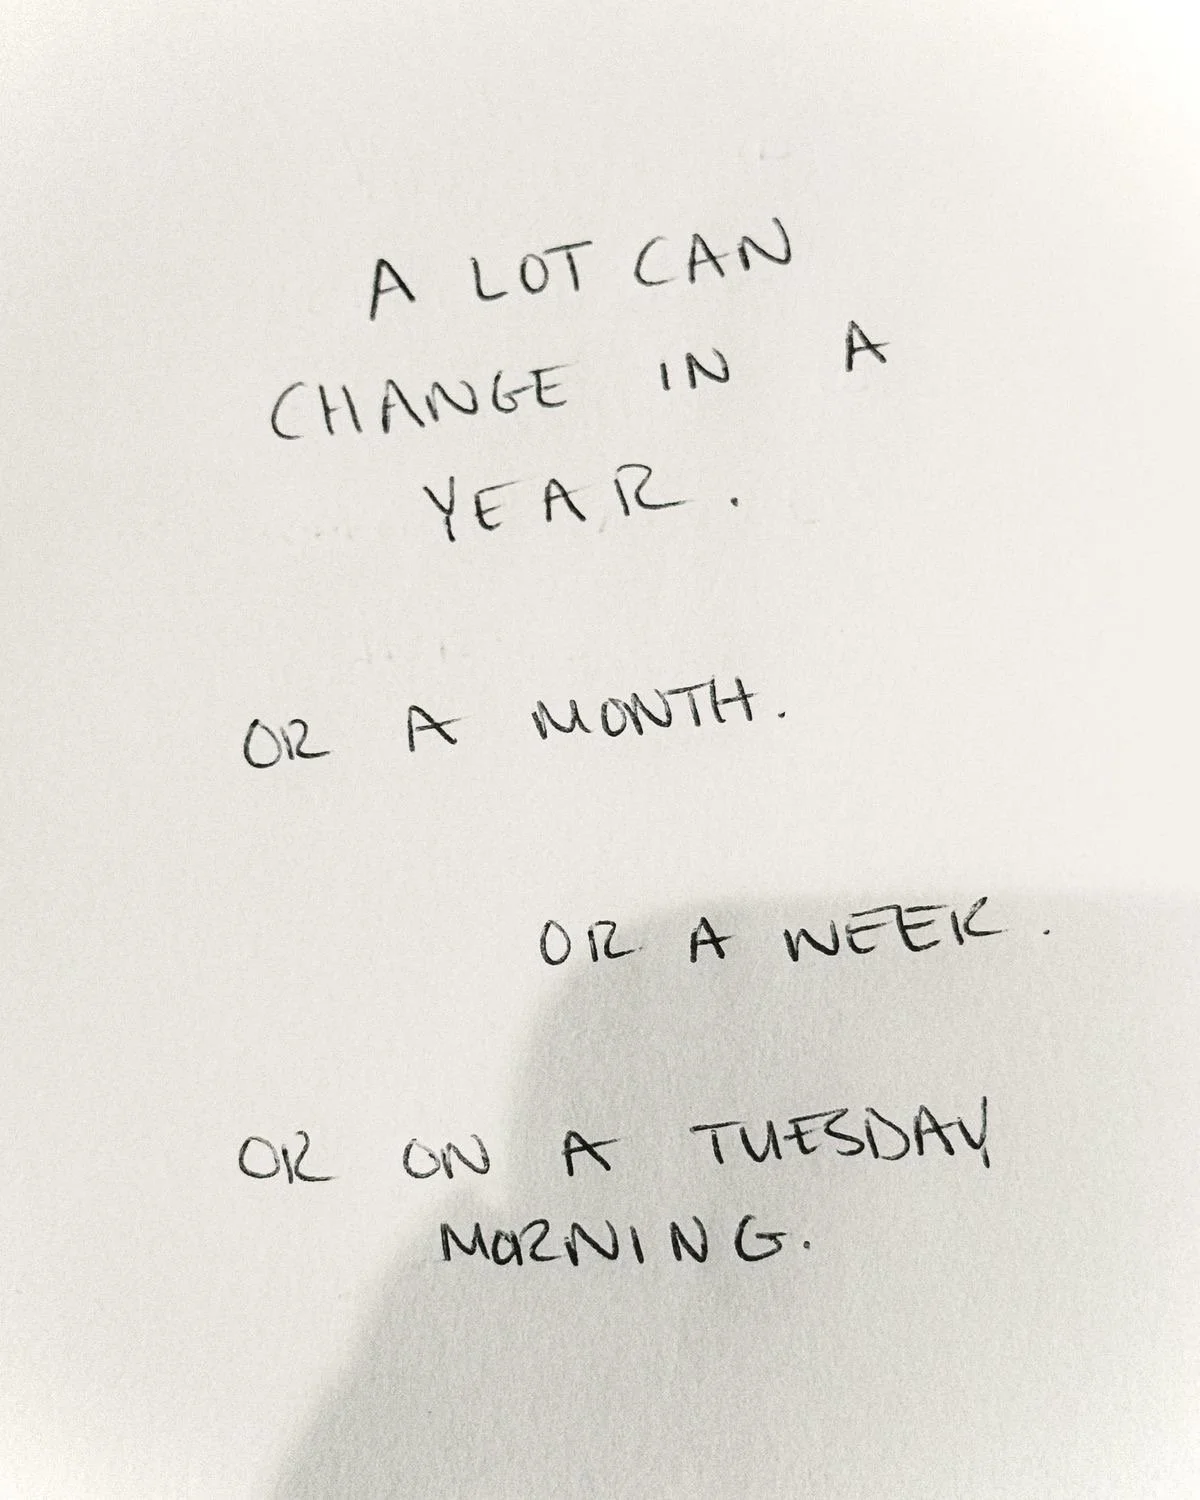 A LOT CAN
CHANGE IN A
YEAR.
OR A MONTH.
OR A WEEK.
OR ON A TUESDAY
MORNING.